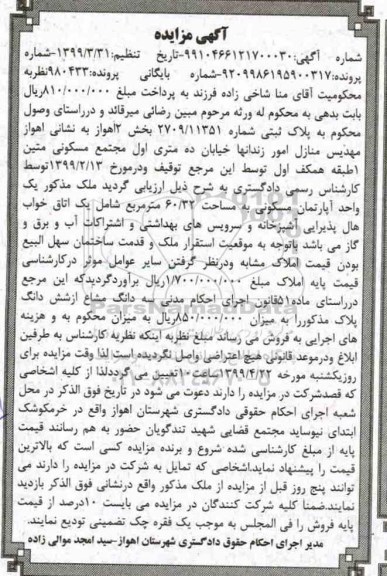 آگهی مزایده
شماره آگهی:۹۹۱۰۴۶۶۱۲۱۷۰۰۰۳۰-تاریخ تنظیم:۱۳۹۹/۳/۳۱-شماره
پرونده:۹۲۰۹۹۸۶۱۹۵۹۰۰۳۱۷-شماره بایگانی پرونده:۹۸۰۴۳۳نظربه
محکومیت آقای منا شاخی زاده فرزند به پرداخت مبلغ ۸۱۰/۰۰۰/۰۰۰ریال
بابت بدهی به محکوم له ورثه مرحوم مبین رضائی میرقائد و درراستای وصول
محکوم به پلاک ثبتی شماره ۲۷۰۹/۱۱۳۵۱ بخش ۲اهواز به نشانی اهواز
مهدیس منازل امور زندانها خیابان ده متری اول مجتمع مسکونی متین
۱طبقه همکف اول توسط این مرجع توقیف ودرمورخ ۱۳۹۹/۲/۱۳توسط
کارشناس رسمی دادگستری به شرح ذیل ارزیابی گردید ملک مذکور یک
واحد آپارتمان مسکونی به مساحت ۶۰/۳۲ مترمربع شامل یک اتاق خواب
هال پذیرایی آشپزخانه و سرویس های بهداشتی و اشتراکات آب و برق و
گاز می باشد باتوجه به موقعیت استقرار ملک و قدمت ساختمان سهل البیع
بودن قیمت املاک مشابه ودرنظر گرفتن سایر عوامل موثر درکارشناسی
قیمت پایه املاک مبلغ ۱/۷۰۰/۰۰۰/۰۰۰ریال برآوردگردیدکه این مرجع
درراستای ماده۵۱قانون اجرای احکام مدنی سه دانگ مشاع ازشش دانگ
پلاک مذکوررا به میزان ۸۵۰/۰۰۰/۰۰۰ریال به میزان محکوم به و هزینه
های اجرایی به فروش می رساند مبلغ نظربه اینکه نظریه کارشناس به طرفین
ابلاغ ودرموعد قانونی هیچ اعتراضی واصل نگردیده است لذا وقت مزایده برای
روزیکشنبه مورخه ۱۳۹۹/۴/۲۲ساعت۱۰تعیین می گرددلذا از کلیه اشخاصی
که قصدشرکت در مزایده را دارند دعوت می شود در تاریخ فوق الذکر در محل
شعبه اجرای احکام حقوقی دادگستری شهرستان اهواز واقع در خرمکوشک
ابتدای نیوساید مجتمع قضایی شهید تندگویان حضور به هم رسانند قیمت
پایه از مبلغ کارشناسی شده شروع و برنده مزایده کسی است که بالاترین
قیمت را پیشنهاد نمایداشخاصی که تمایل به شرکت در مزایده را دارند می
توانند پنج روز قبل از مزایده از ملک مذکور واقع درنشانی فوق الذکر بازدید
نمایند.ضمنا کلیه شرکت کنندگان در مزایده می بایست ۱۰درصد از قیمت
پایه فروش را فی المجلس به موجب یک فقره چک تضمینی تودیع نمایند.
مدیر اجرای احکام حقوق دادگستری شهرستان اهواز-سید امجد موالی زاده